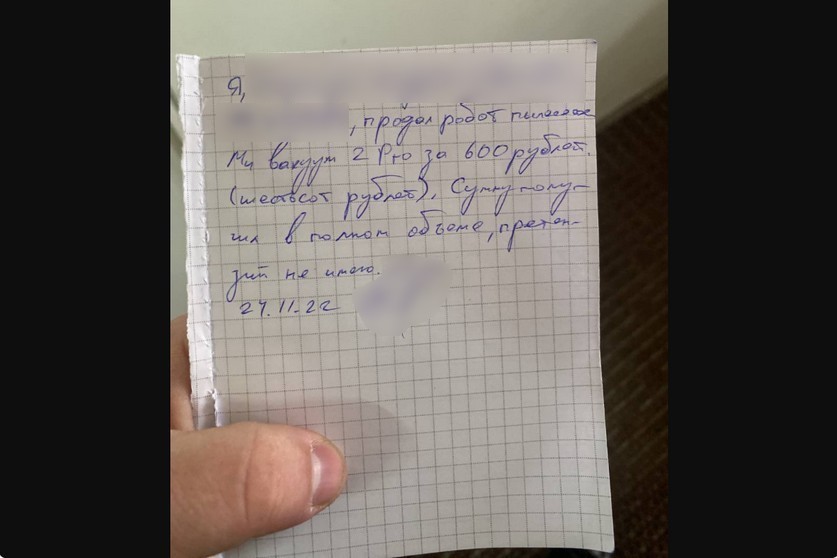 Я,
, продал робот пылесос
Ми вакуум 2 Pro за 600 рублей.
(шестьсот рублей), Сумму полу-
чил в полном объеме, претен-
зий не имею.
27.11.22